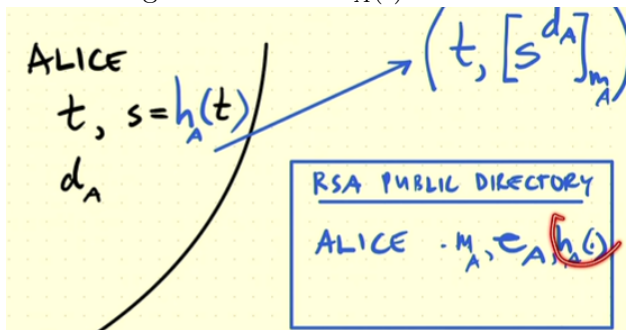 ALICE
t, s = h_A(t)
d_A
(t, [s^{d_A}]_{m_A})
RSA PUBLIC DIRECTORY
ALICE . m_A, e_A, h_A(·)